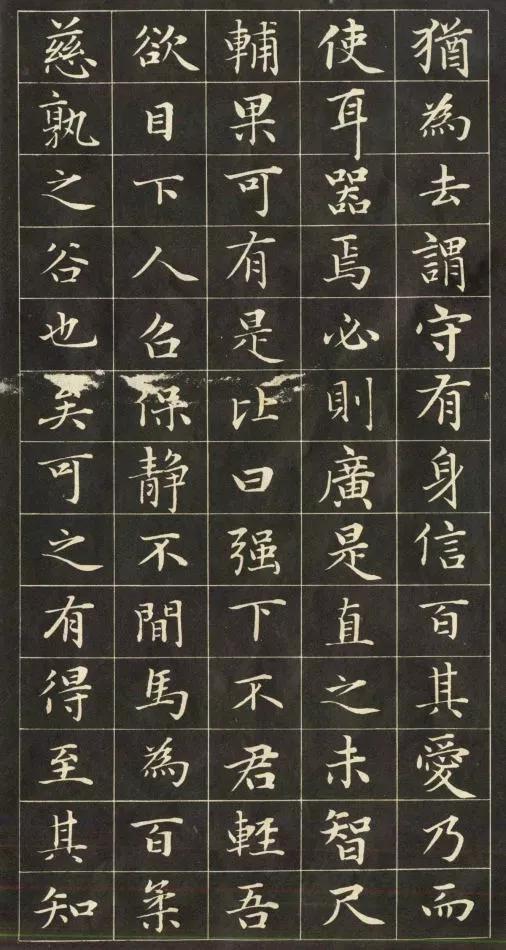 猶為去謂守有身信百其愛乃而
使耳器焉必則廣是直之未智尺
輔果可有是比曰强下不君輕吾
欲目下人名保静不間馬為百柔
慈孰之谷也矣可之有得至其知